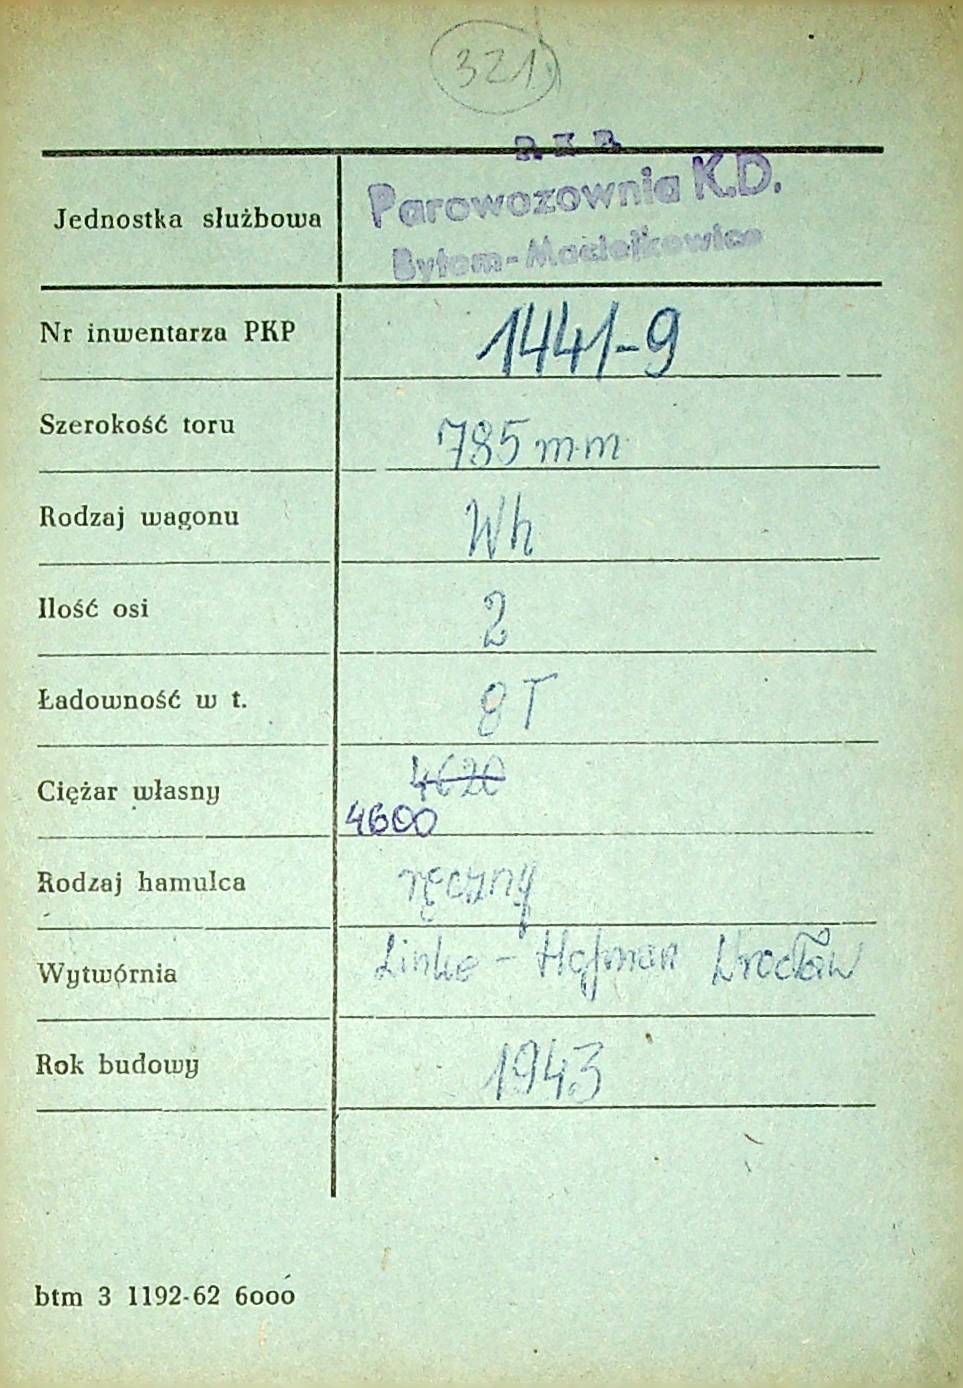 321
P. K. P.
Jednostka służbowa Parowozownia K.D.
Bytom-Maciejkowice
Nr inwentarza PKP 1441-9
Szerokość toru 785 mm
Rodzaj wagonu Wh
Ilość osi 2
Ładowność w t. 8 T
Ciężar własny 4620
4600
Rodzaj hamulca ręczny
Wytwórnia Linke - Hofman Wrocław
Rok budowy 1943
btm 3 1192-62 6000